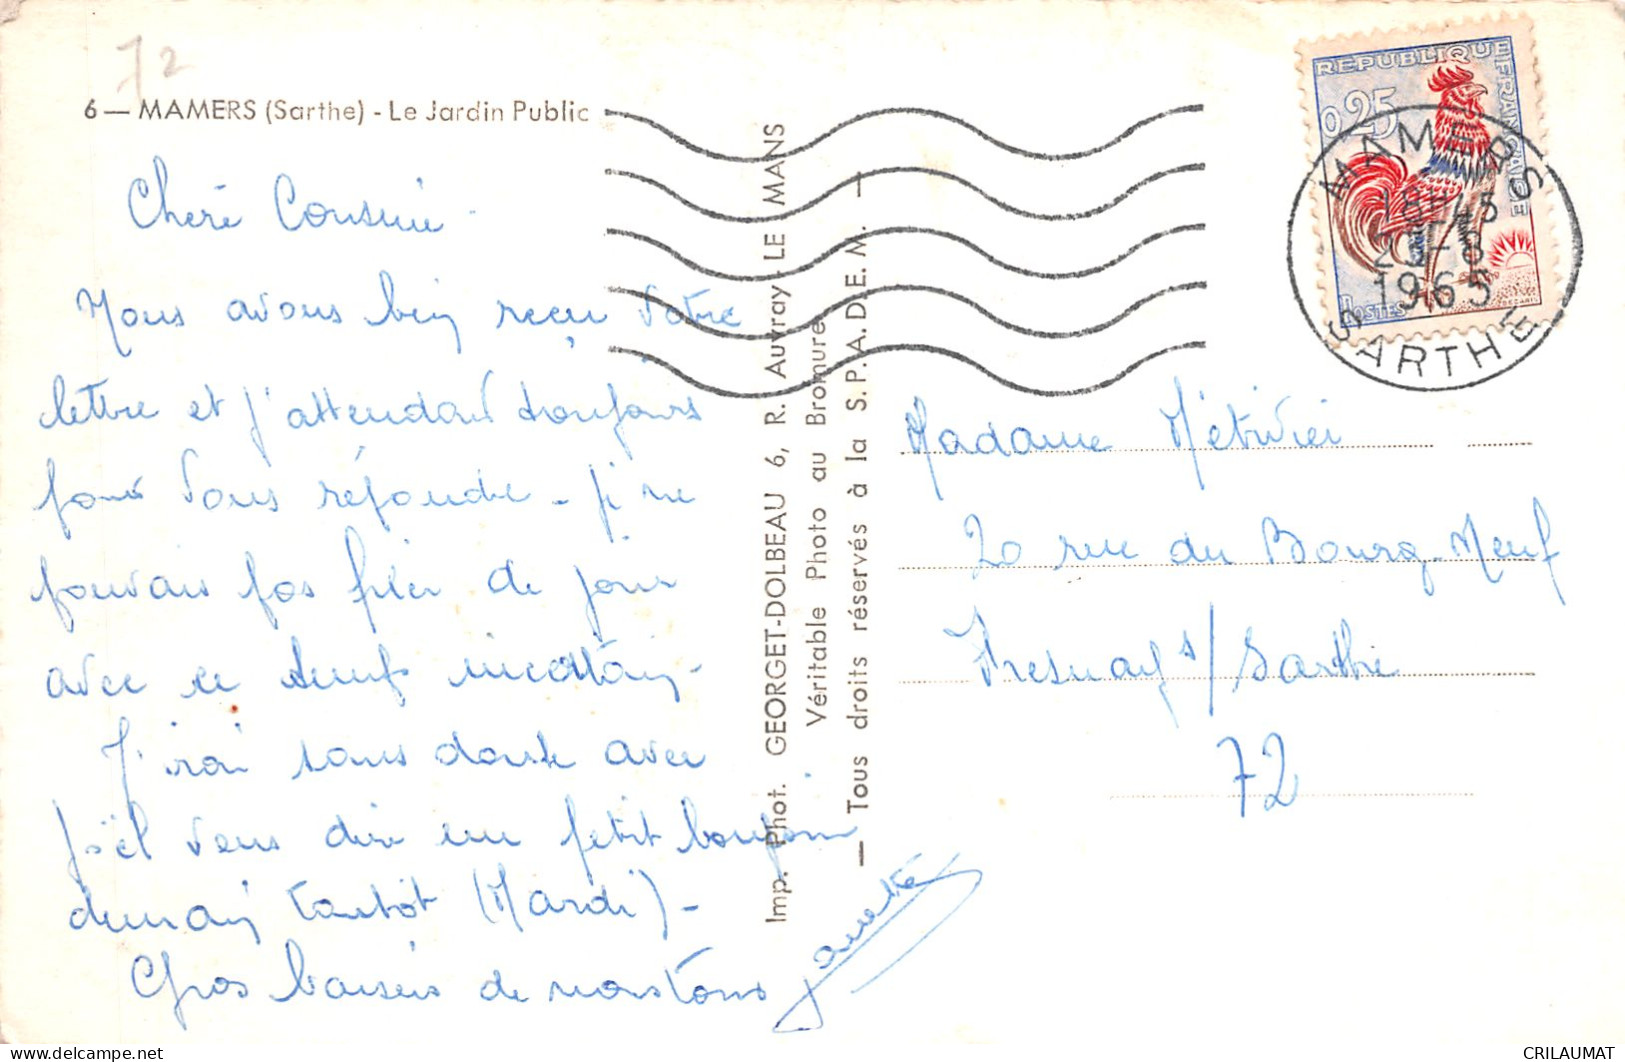 72
6 — MAMERS (Sarthe) - Le Jardin Public
Chère Cousine
Nous avons bien reçu votre
lettre et j'attendais toujours
pour vous répondre - je ne
pouvais pas fixer de jour
avec ce temps incertain -
J'irai sans doute avec
Joël vous dire un petit bonjour
demain tantôt (Mardi) -
Gros baisers de nous tous
Janette
Imp. Phot. GEORGET-DOLBEAU 6, R. Auvray LE MANS
Véritable Photo au Bromure
— Tous droits réservés à la S.P.A.D.E.M. —
REPUBLIQUE FRANÇAISE
0,25
POSTES
MAMERS
18H45
1965
SARTHE
Madame Métivier
20 rue du Bourg-Neuf
Fresnay s/ Sarthe
72
CRILAUMAT